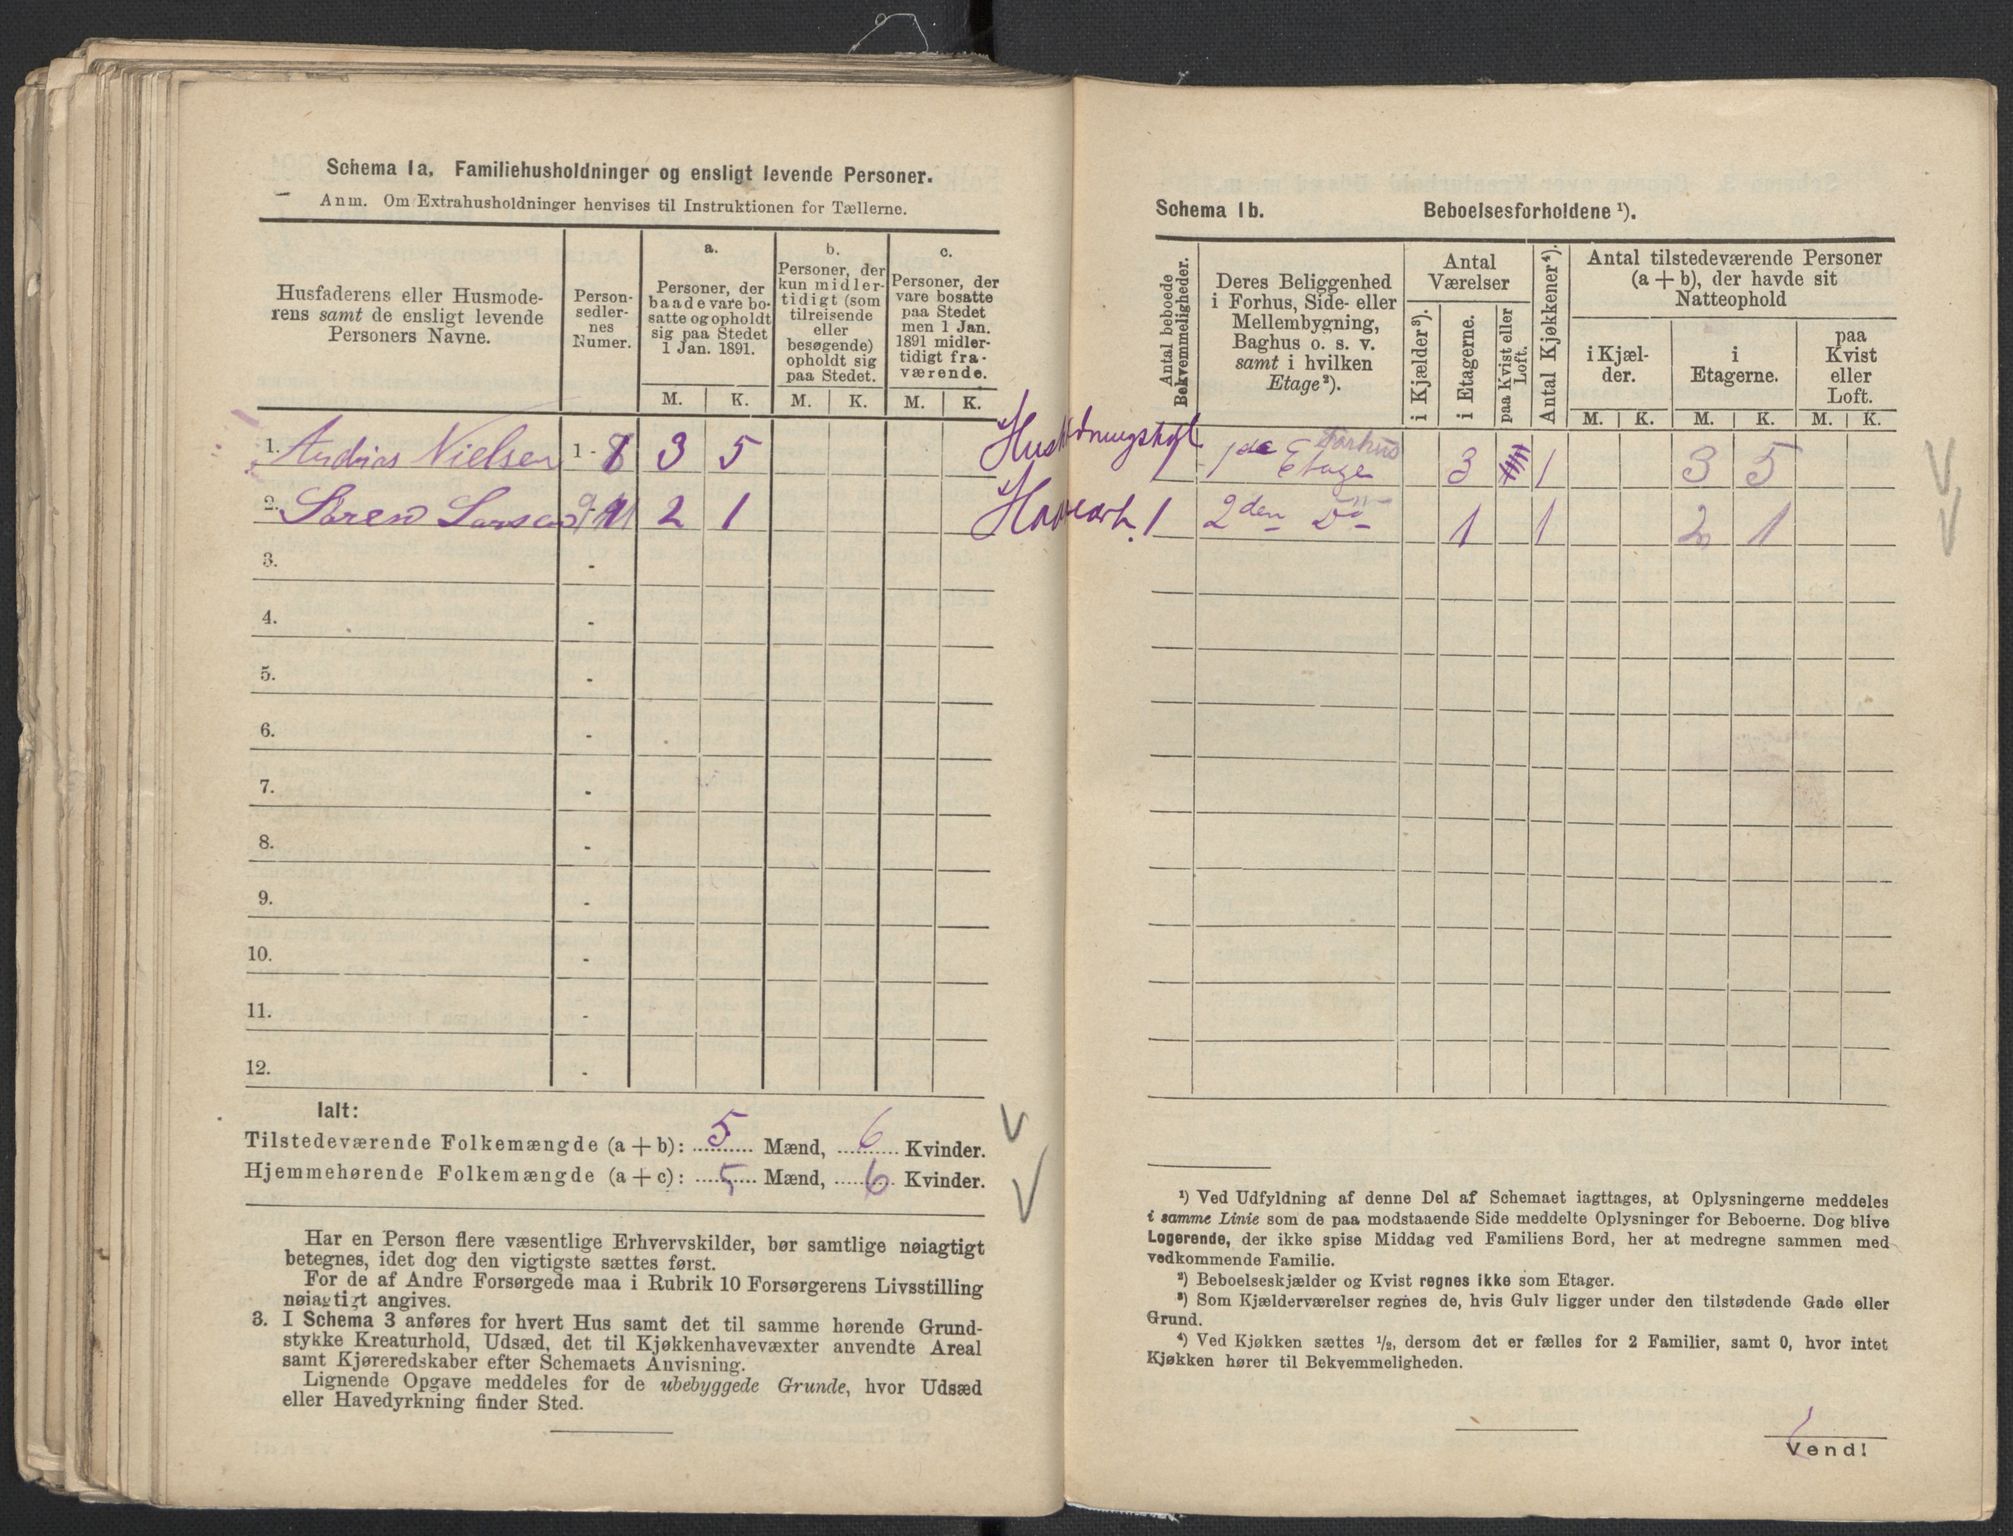 Schema 1a. Familiehusholdninger og ensligt levende Personer.
Anm. Om Extrahusholdninger henvises til Instruktionen for Tællerne.
Husfaderens eller Husmode-
rens samt de ensligt levende
Personers Navne.
Person-
sedler-
nes
Numer.
a.
Personer, der
baade vare bo-
satte og opholdt
sig paa Stedet
1 Jan. 1891.
b.
Personer, der
kun midler-
tidigt (som
tilreisende
eller
besøgende)
opholdt sig
paa Stedet.
c.
Personer, der
vare bosatte
paa Stedet
men 1 Jan.
1891 midler-
tidigt fra-
værende.
M. K. M. K. M. K.
1. Andrias Nielsen 1 - 8 3 5
2. Søren Larsen 9-11 2 1
3. -
4. -
5. -
6. -
7. -
8. -
9. -
10. -
11. -
12. -
Ialt:
Tilstedeværende Folkemængde (a + b): 5 Mænd, 6 Kvinder.
Hjemmehørende Folkemængde (a + c): 5 Mænd, 6 Kvinder.
Har en Person flere væsentlige Erhvervskilder, bør samtlige nøiagtigt
betegnes, idet dog den vigtigste sættes først.
For de af Andre Forsørgede maa i Rubrik 10 Forsørgerens Livsstilling
nøiagtigt angives.
3. I Schema 3 anføres for hvert Hus samt det til samme hørende Grund-
stykke Kreaturhold, Udsæd, det til Kjøkkenhavevæxter anvendte Areal
samt Kjøreredskaber efter Schemaets Anvisning.
Lignende Opgave meddeles for de ubebyggede Grunde, hvor Udsæd
eller Havedyrkning finder Sted.
Schema 1b. Beboelsesforholdene ¹).
Antal beboede
Bekvemmeligheder.
Deres Beliggenhed
i Forhus, Side- eller
Mellembygning,
Baghus o. s. v.
samt i hvilken
Etage²).
Antal
Værelser
i Kjælder³).
i Etagerne.
paa Kvist eller
Loft.
Antal Kjøkkener⁴).
Antal tilstedeværende Personer
(a + b), der havde sit
Natteophold
i Kjæl-
der.
i
Etagerne.
paa
Kvist
eller
Loft.
M. K. M. K. M. K.
1 1de Forhus
Etage 3 1 3 5
1 2den Do 1 1 2 1
¹) Ved Udfyldning af denne Del af Schemaet iagttages, at Oplysningerne meddeles
i samme Linie som de paa modstaaende Side meddelte Oplysninger for Beboerne. Dog blive
Logerende, der ikke spise Middag ved Familiens Bord, her at medregne sammen med
vedkommende Familie.
²) Beboelseskjælder og Kvist regnes ikke som Etager.
³) Som Kjælderværelser regnes de, hvis Gulv ligger under den tilstødende Gade eller
Grund.
⁴) Ved Kjøkken sættes ¹/₂, dersom det er fælles for 2 Familier, samt 0, hvor intet
Kjøkken hører til Bekvemmeligheden.
Vend!